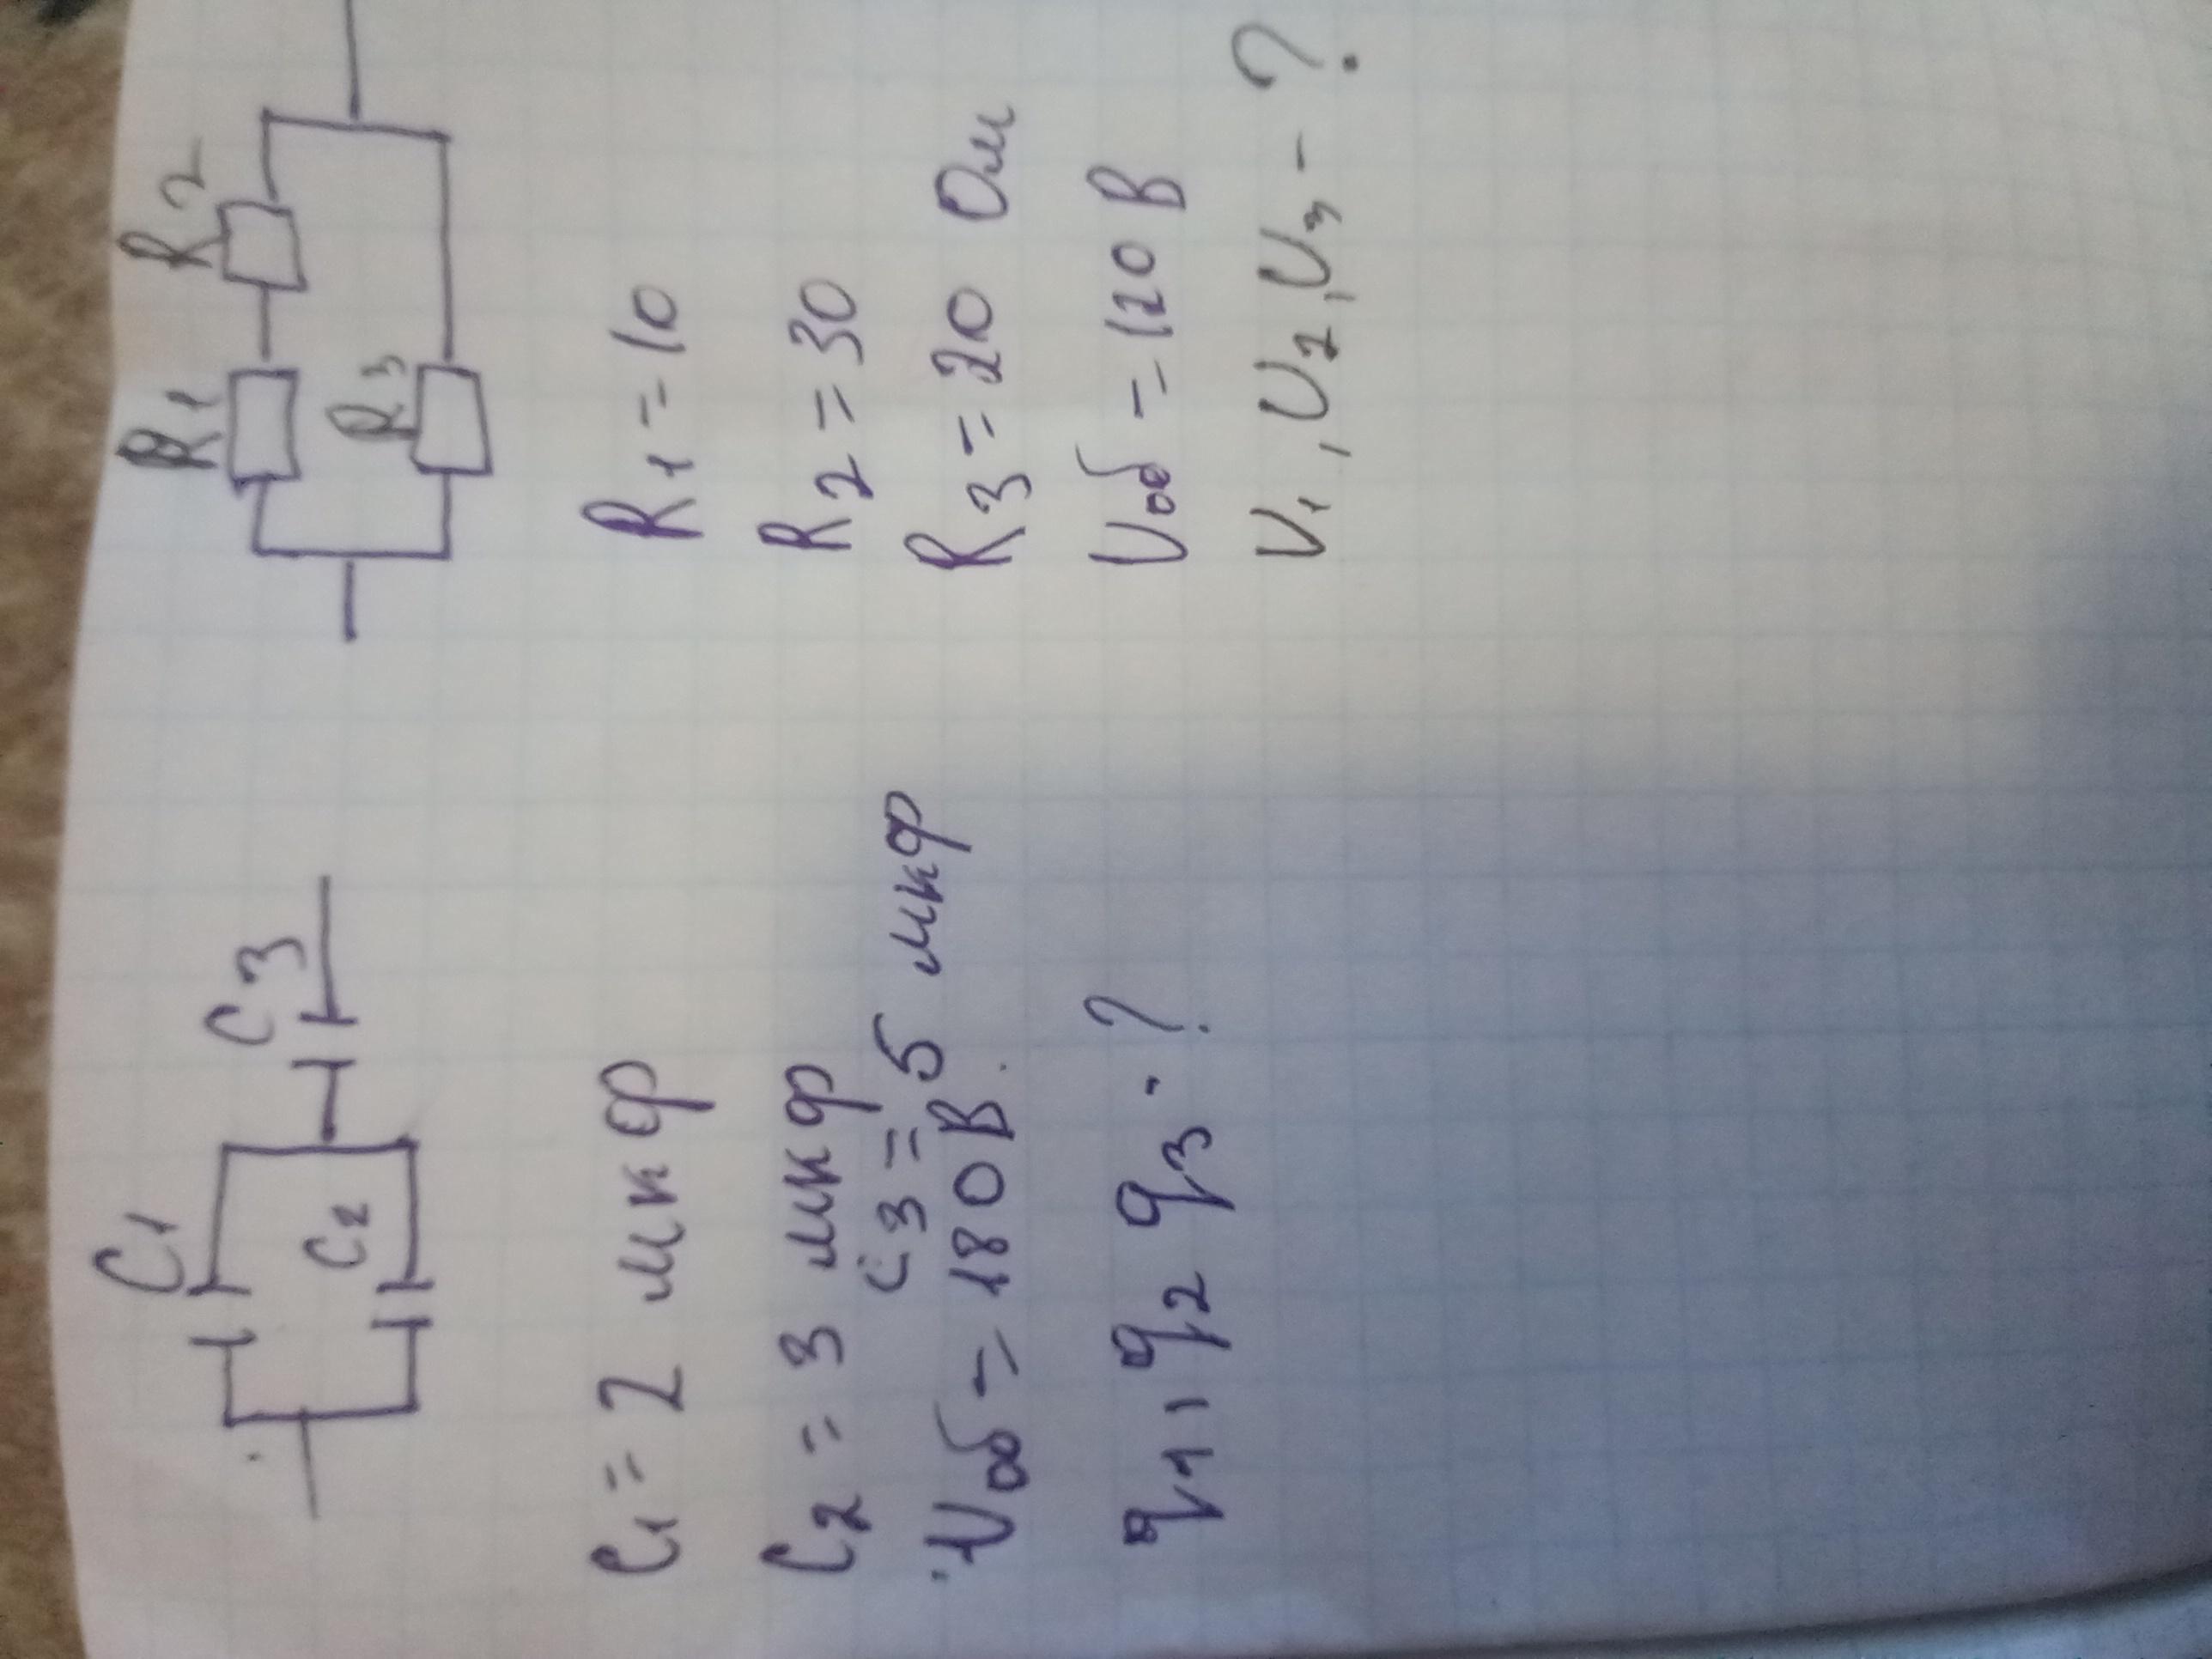 C1
C2
C3
C1 = 2 мкф
C2 = 3 мкф
C3 = 5 мкф
Uоб = 180 В.
q1, q2 q3 - ?
R1
R2
R3
R1 = 10
R2 = 30
R3 = 20 Ом
Uоб = 120 В
U1, U2, U3 - ?